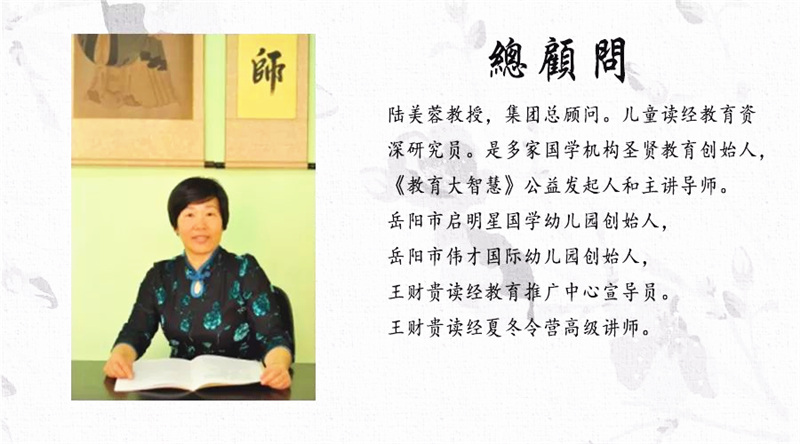 師
總顧問
陆美蓉教授，集团总顾问。儿童读经教育资
深研究员。是多家国学机构圣贤教育创始人，
《教育大智慧》公益发起人和主讲导师。
岳阳市启明星国学幼儿园创始人，
岳阳市伟才国际幼儿园创始人，
王财贵读经教育推广中心宣导员。
王财贵读经夏冬令营高级讲师。